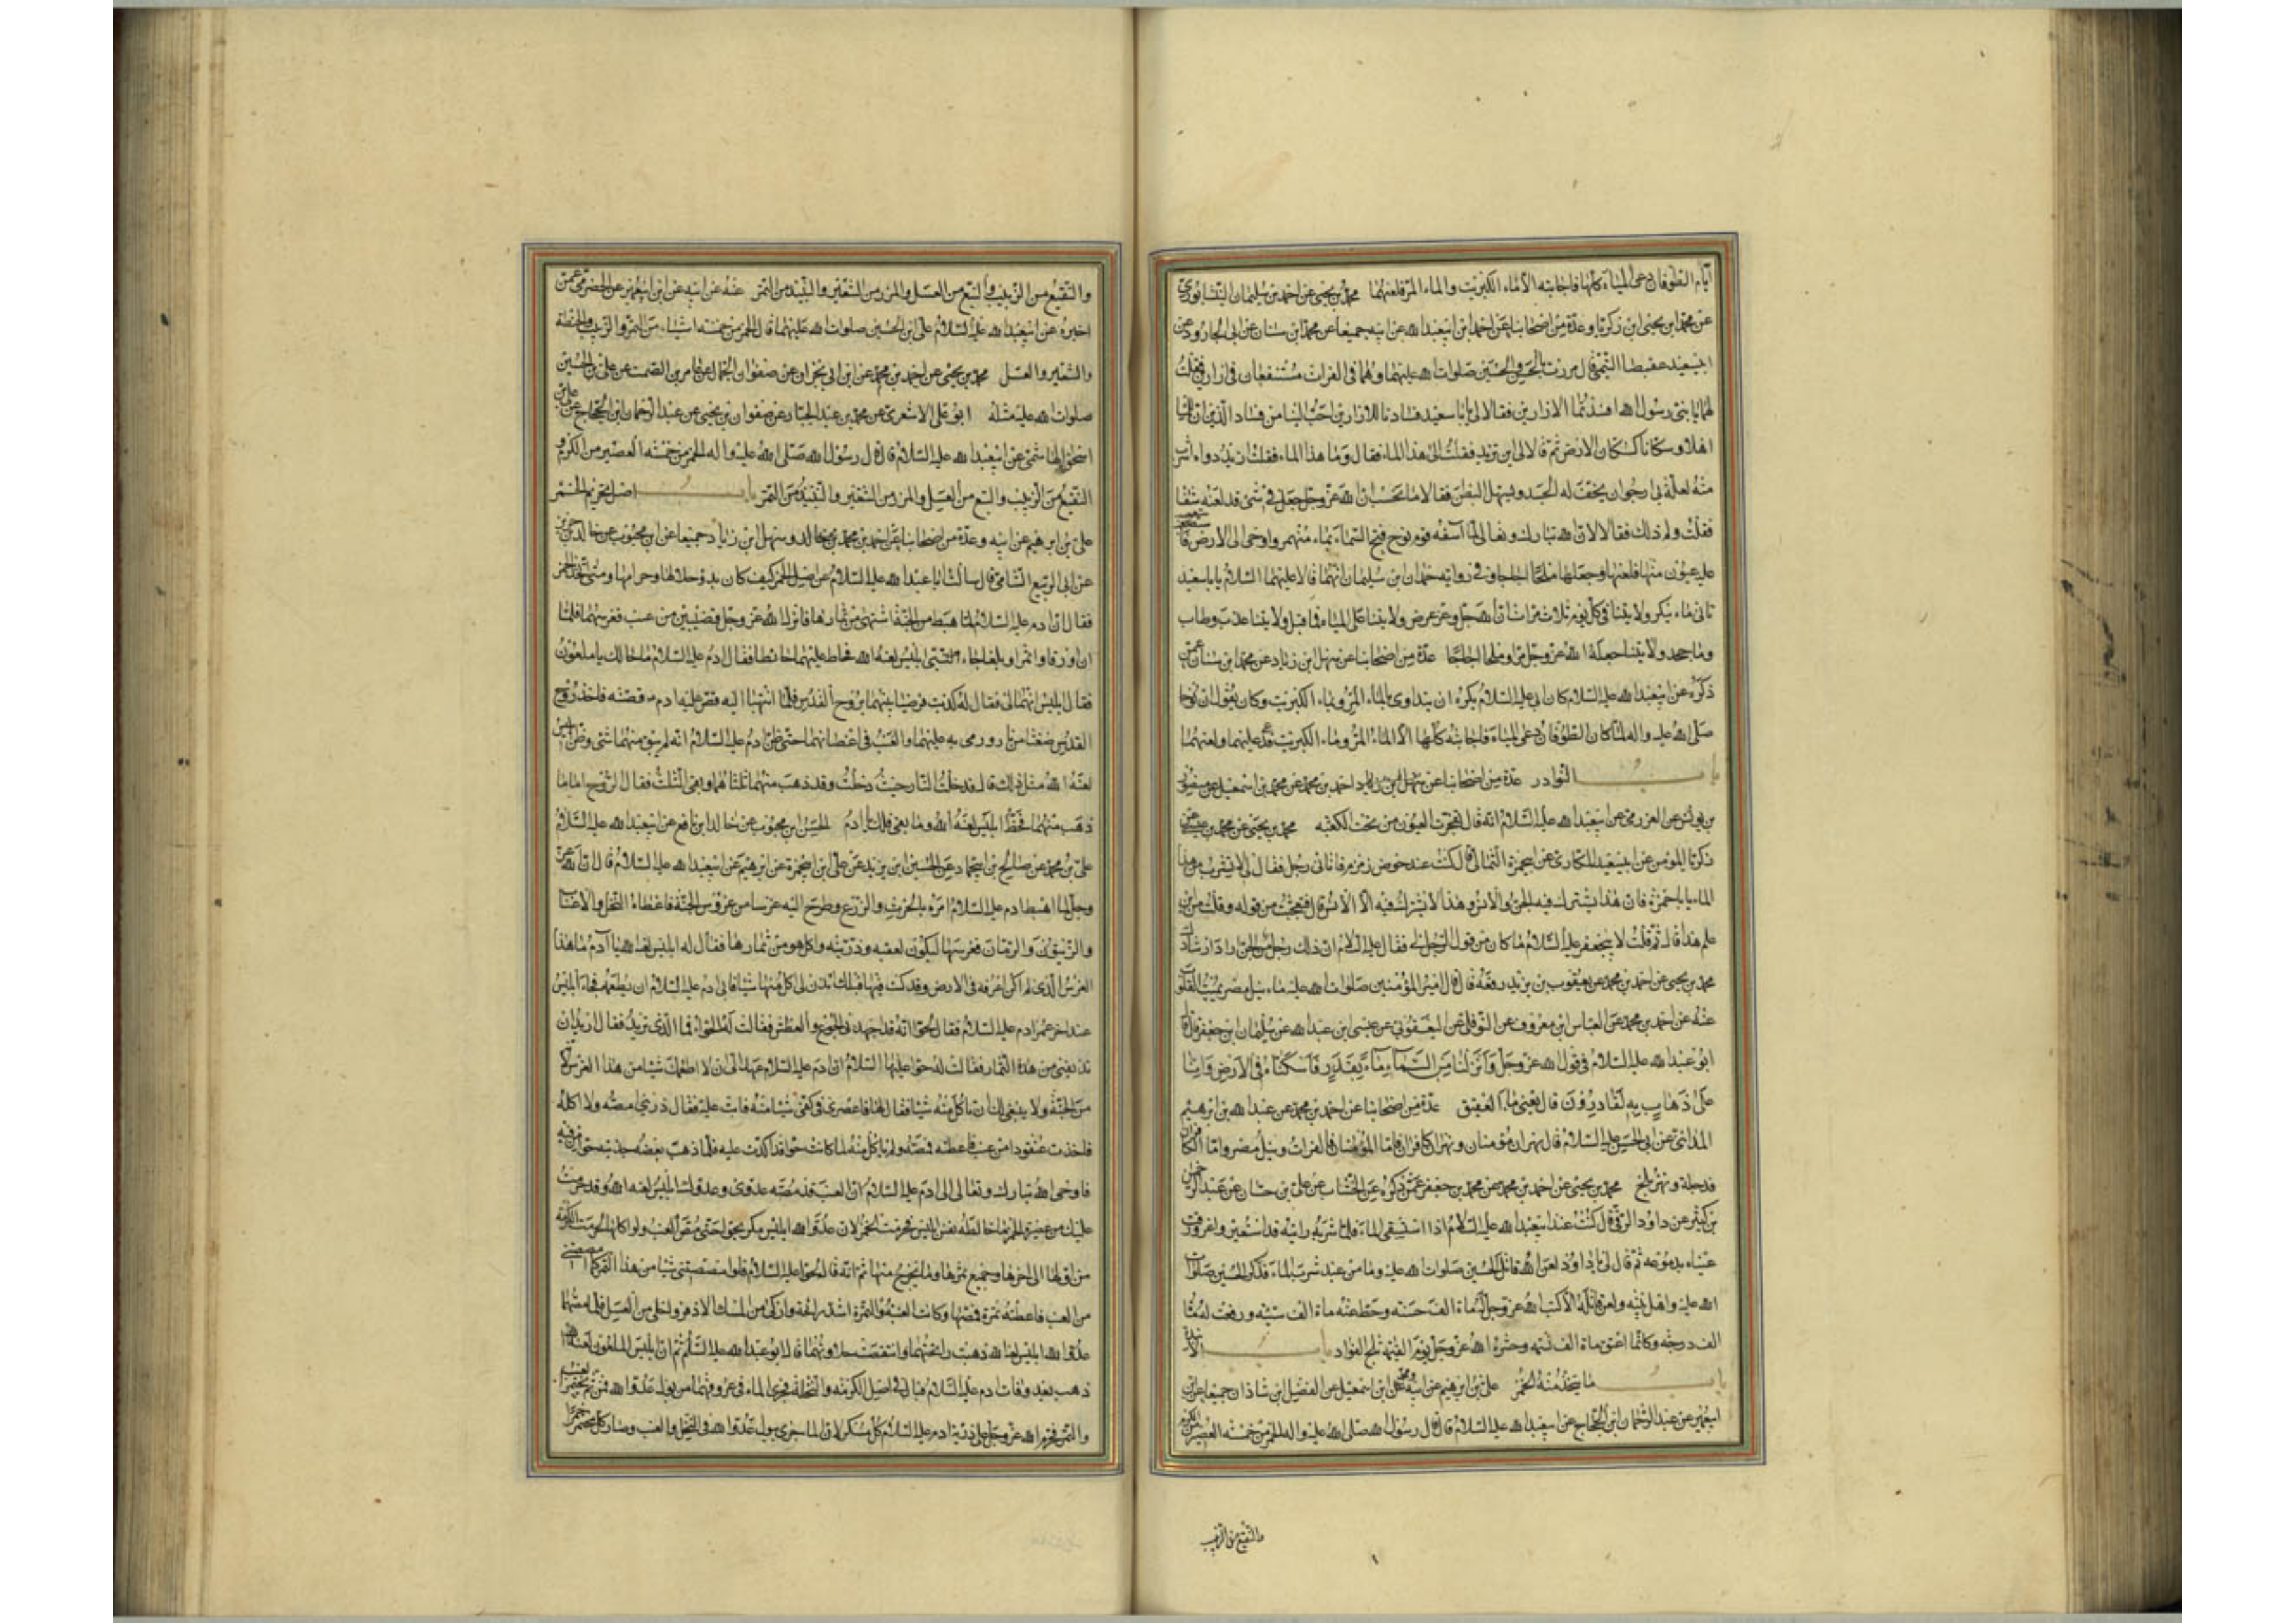 ايام الطوفان دعى المياه كلها فاجابته الا الماء الكبريت والماء المر فلعنهما محمد بن يحيى عن احمد بن سليمان النيشابوري
عن محمد ابن يحيى ابن زكريا وعدة من اصحابنا عن احمد ابن ابيعبد الله عن ابيه جميعا عن محمد ابن سنان عن ابى الجارود عن
ابيسعيد عقيصا التيمى قال مررت بالحسن والحسين صلوات الله عليهما وهما فى الفرات مستنقعان فى ازارين فقلت
لهما يا بنى رسول الله افسدتما الازارين فقالا لى يا با سعيد فسادنا للازارين احب الينا من فساد الدين ان للماء
اهلا وسكانا كسكان الارض ثم قالا لى اين تريد فقلت الى هذا الماء فقال وما هذا الماء فقلت اريد دواءه اشرب
منه لعلة بى ارجو ان يخف له الجسد ويسهل البطن فقالا ما نحسب ان الله عز وجل جعل فى شئ قد لعنه شفا
فقلت ولم ذلك فقالا لان الله تبارك وتعالى لما آسفه قوم نوح فتح السماء بماء منهمر واوحى الى الارض
عليه عيون منها فلعنها وجعلها ملحا اجاجا وفى رواية حمدان ابن سليمان انهما قالا عليهما السلام يا با سعيد
تاتى ماء ينكر ولايتنا فى كل يوم ثلاث مرات ان الله جل وعز عرض ولايتنا على المياه فما قبل ولايتنا عذب وطاب
وما جحد ولايتنا جعله الله عز وجل مرا وملحا اجاجا عدة من اصحابنا عن سهل ابن زياد عن محمد ابن سنان عمن
ذكره عن ابيعبد الله عليه السلام كان ابى عليه السلام يكره ان يتداوى بالماء المر وبماء الكبريت وكان يقول ان نوحا
صلى الله عليه واله لما كان الطوفان دعى المياه فاجابته كلها الا الماء المر وماء الكبريت فدعى عليهما ولعنهما
باب النوادر عدة من اصحابنا عن سهل ابن زياد احمد بن محمد عن محمد بن اسمعيل عن منصور
بن يونس عن العرزمى عن ابيعبد الله عليه السلام انه قال تفجرت العيون من تحت الكعبة محمد بن يحيى عن محمد بن
زكريا المؤمن عن ابيسعيد المكارى عن ابيحمزة الثمالى قال كنت عند حوض زمزم فاتانى رجل فقال لى لا تشرب من هذا
الماء يا با حمزة فان هذا يشترك فيه الجن والانس وهذا لا يشترك فيه الا الانس قال فتعجبت من قوله وقلت من اين
علم هذا قال ثم قلت لابيجعفر عليه السلام ما كان من قول الرجل لى فقال عليه السلام ان ذلك رجل من الجن اراد ارشادك
محمد بن يحيى عن احمد بن محمد عن يعقوب بن يزيد رفعه قال قال امير المؤمنين صلوات الله عليه ماء نيل مصر يميت القلوب
عنه عن احمد بن محمد عن العباس ابن معروف عن النوفلى عن اليعقوبى عن عيسى ابن عبد الله عن سليمان ابن جعفر قال قال
ابو عبد الله عليه السلام فى قول الله عز وجل وانزلنا من السماء ماء بقدر فاسكناه فى الارض وانا
على ذهاب به لقادرون قال يعنى ماء العقيق عدة من اصحابنا عن احمد بن محمد عن عبد الله بن ابرهيم
المداينى عن ابى الحسن عليه السلام قال نهران مؤمنان ونهران كافران فاما المؤمنان فالفرات ونيل مصر واما الكافران
فدجلة ونهر بلخ محمد بن يحيى عن احمد بن محمد عن محمد بن جعفر عمن ذكره عن الخشاب عن على بن حسان عن عبد الرحمن
بن كثير عن داود الرقى قال كنت عند ابيعبد الله عليه السلام اذا استسقى الماء فلما شربه رايته قد استعبر واغرورقت
عيناه بدموعه ثم قال لى يا داود لعن الله قاتل الحسين صلوات الله عليه وما من عبد شرب الماء فذكر الحسين صلوات
الله عليه واهل بيته ولعن قاتله الا كتب الله عز وجل له ماة الف حسنة وحط عنه ماة الف سيئة ورفعت له ماة
الف درجة وكانما اعتق ماة الف نسمة وحشره الله عز وجل يوم القيمة ثلج الفؤاد باب الانبذة
باب ما يتخذ منه الخمر على بن ابرهيم عن ابيه ومحمد ابن اسمعيل عن الفضل ابن شاذان جميعا عن ابن
ابيعمير عن عبد الرحمان ابن الحجاج عن ابيعبد الله عليه السلام قال قال رسول الله صلى الله عليه واله الخمر من خمسة العصير من الكرم
والنقيع من الزبيب
والنقيع من الزبيب والبتع من العسل والمزر من الشعير والنبيذ من التمر عنه عن ابيه عن ابن ابيعمير عن الحضرمى عمن
اخبره عن ابيعبد الله عليه السلام على ابن الحسين صلوات الله عليهما قال الخمر من خمسة اشياء من التمر والزبيب والحنطة
والشعير والعسل محمد بن يحيى عن احمد بن محمد عن ابن ابى نجران عن صفوان الجمال عن عامر بن السمط عن على بن الحسين
صلوات الله عليه مثله ابو على الاشعرى عن محمد بن عبد الجبار عن صفوان بن يحيى عن عبد الرحمان ابن الحجاج عن على بن
اسحق الهاشمى عن ابيعبد الله عليه السلام قال قال رسول الله صلى الله عليه واله الخمر من خمسة العصير من الكرم و
النقيع من الزبيب والبتع من العسل والمزر من الشعير والنبيذ من التمر باب اصل تحريم الخمر
على بن ابرهيم عن ابيه وعدة من اصحابنا عن احمد بن محمد بن خالد وسهل ابن زياد جميعا عن ابن محبوب عن خالد بن جرير
عن ابى الربيع الشامى قال سالت ابا عبد الله عليه السلام عن اصل الخمر كيف كان بدو حلالها وحرامها ومتى اتخذ الخمر
فقال ان ادم عليه السلام لما هبط من الجنة اشتهى من ثمارها فانزل الله عز وجل قضيبين من عنب فغرسهما فلما
ان اورقا واثمرا وبلغا جاء ابليس لعنه الله فحاط عليهما حائطا فقال ادم عليه السلام ما حالك يا ملعون
فقال ابليس انهما لى فقال له كذبت فرضيا بينهما بروح القدس فلما انتهيا اليه قص عليه ادم قصته فاخذ روح
القدس ضغثا من نار ورمى به عليهما والعنب فى اغصانهما حتى ظن ادم عليه السلام انه لم يبق منهما شئ وظن ابليس
لعنه الله مثل ذلك قال فدخلت النار حيث دخلت وقد ذهب منهما ثلثاهما وبقى الثلث فقال الروح اما ما
ذهب منهما فحظ ابليس لعنه الله وما بقى فلك يا ادم الحسن ابن محبوب عن خالد ابن نافع عن ابيعبد الله عليه السلام
على بن محمد عن صالح بن ابيحماد عن الحسين ابن يزيد عن على ابن ابيحمزة عن ابرهيم عن ابيعبد الله عليه السلام قال ان الله عز
وجل لما اهبط ادم عليه السلام امره بالحرث والزرع وطرح اليه غرسا من غروس الجنة فاعطاه النخل والاعناب
والزيتون والرمان فغرسها ليكون لعقبه وذريته واكل هو من ثمارها فقال له ابليس لعنه الله يا آدم ما هذا
الغرس الذى لم اكن اعرفه فى الارض وقد كنت فيها قبلك ائذن لى اكل منها شيئا فابى ادم عليه السلام ان يطعمه فجاء ابليس
عند اخر عمر ادم عليه السلام فقال لحوا انه قد اجهدنى الجوع والعطش فقالت له حواء فما الذى تريد فقال اريد ان
تذيقينى من هذه الثمار فقالت له حوا عليها السلام ان ادم عليه السلام عهد الى ان لا اطعمك شيئا من هذا الغرس لانه
من الجنة ولا ينبغى لك ان تاكل منه شيئا فقال لها فاعصرى فى كفى شيئا منه فابت عليه فقال ذرينى امصه ولا اكله
فاخذت عنقودا من عنب فاعطته فمصه ولم ياكل منه لما كانت حوا قد اكدت عليه فلما ذهب يعضه جذبته حوا من فيه
فاوحى الله تبارك وتعالى الى ادم عليه السلام ان العنب قد مصه عدوى وعدوك ابليس لعنه الله وقد حرمت
عليك من عصيره الخمر ما خالطه نفس ابليس فحرمت الخمر لان عدو الله ابليس مكر بحوا حتى مص العنب ولو اكلها لحرمت الكرمة
من اولها الى اخرها وجميع ثمرها وما يخرج منها ثم انه قال لحوا عليه السلام فلو امصصتنى شيئا من هذا التمر كما امصصتنى
من العنب فاعطته تمرة فمصها وكانت العنبة والتمرة اشد رائحة وازكى من المسك الاذفر واحلى من العسل فلما مصهما
عدو الله ابليس لعنه الله ذهبت رائحتهما وانتقصت حلاوتهما قال ابو عبد الله عليه السلام ثم ان ابليس الملعون لعنه الله
ذهب بعد وفات ادم عليه السلام فبال فى اصل الكرمة والنخلة فجرى الماء فى عروقهما من بول عدو الله فمن ثم يختمر العنب
والتمر فحرم الله عز وجل على ذرية ادم عليه السلام كل مسكر لان الماء جرى ببول عدو الله فى النخل والعنب وصار كل مختمر خمرا